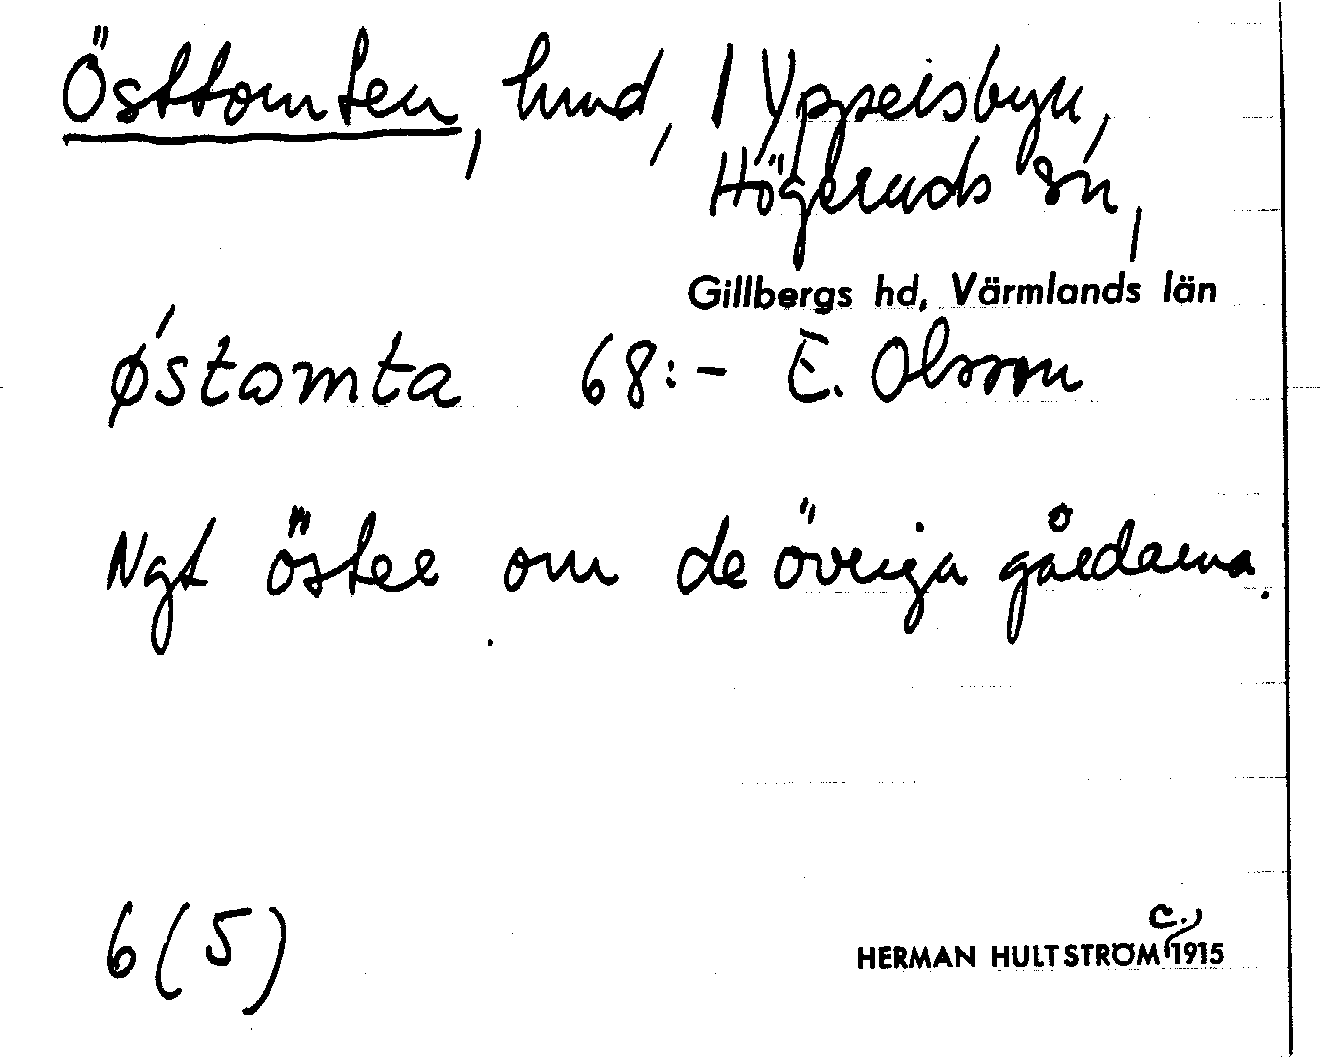 Östtomten, hmd, 1 Yppersbyn,
Högeruds sn,
Gillbergs hd, Värmlands län
ǿstomta 68:- E. Olsson
Ngt öster om de övriga gårdarna.
6(5) HERMAN HULTSTRÖM c.1915